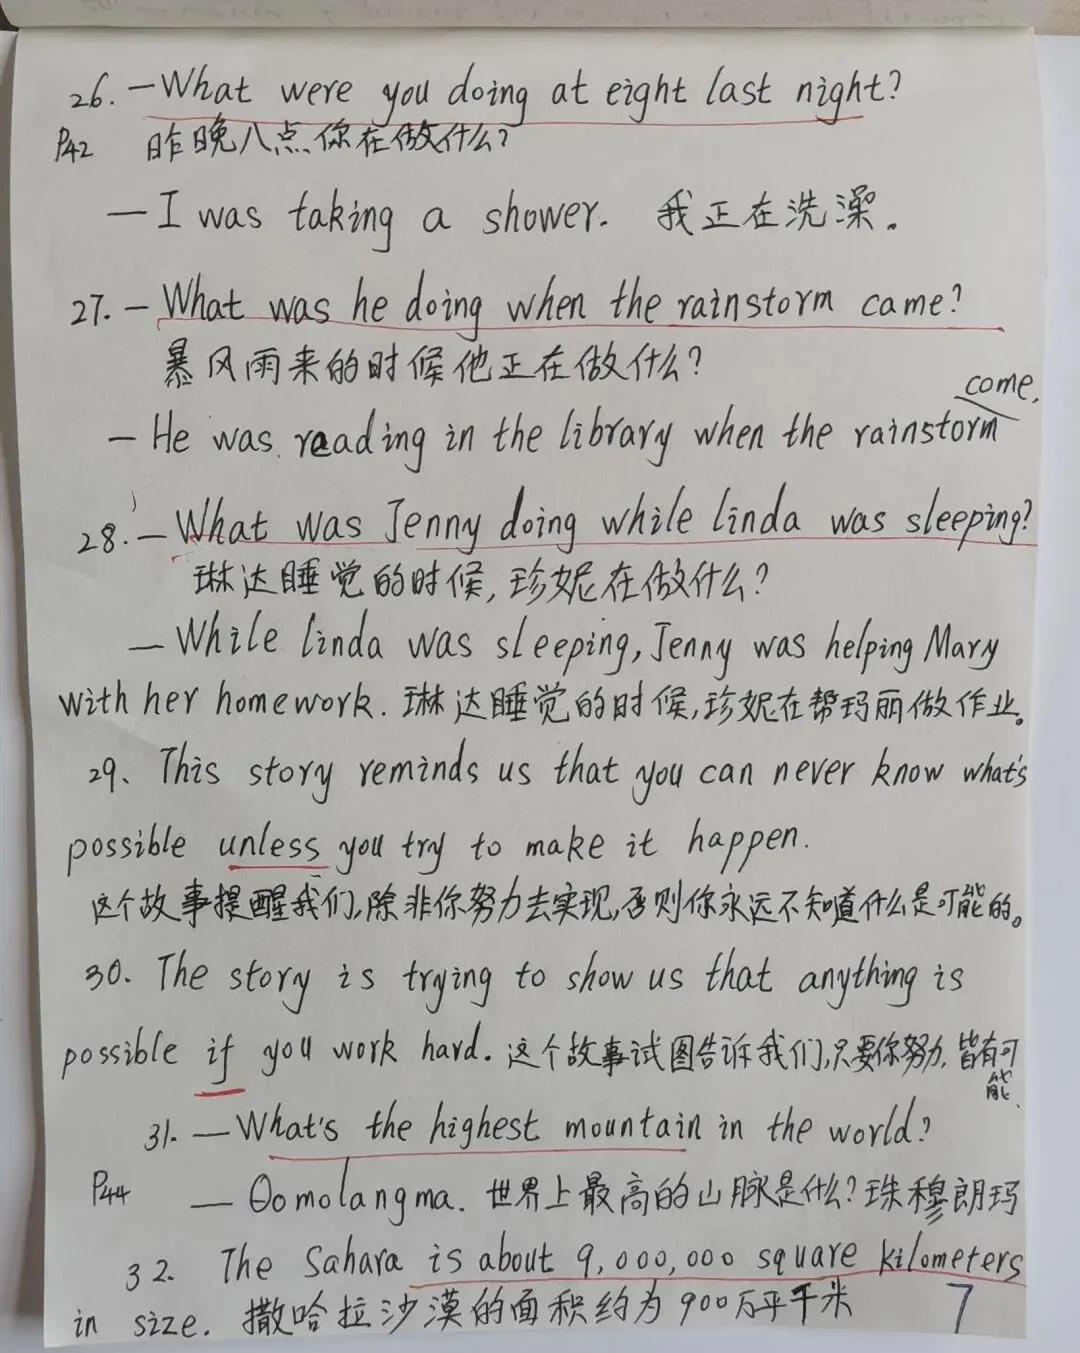 26. —What were you doing at eight last night?
P42 昨晚八点你在做什么?
—I was taking a shower. 我正在洗澡。
27. —What was he doing when the rainstorm came?
暴风雨来的时候他正在做什么?
come.
—He was reading in the library when the rainstorm
28. —What was Jenny doing while linda was sleeping?
琳达睡觉的时候,珍妮在做什么?
—While linda was sleeping, Jenny was helping Mary
with her homework. 琳达睡觉的时候,珍妮在帮玛丽做作业。
29、This story reminds us that you can never know what's
possible unless you try to make it happen.
这个故事提醒我们,除非你努力去实现,否则你永远不知道什么是可能的。
30. The story is trying to show us that anything is
possible if you work hard. 这个故事试图告诉我们,只要你努力,皆有可
能.
31. —What's the highest mountain in the world?
P44 —Qomolangma. 世界上最高的山脉是什么?珠穆朗玛
32. The Sahara is about 9,000,000 square kilometers
in size. 撒哈拉沙漠的面积约为900万平千米 7